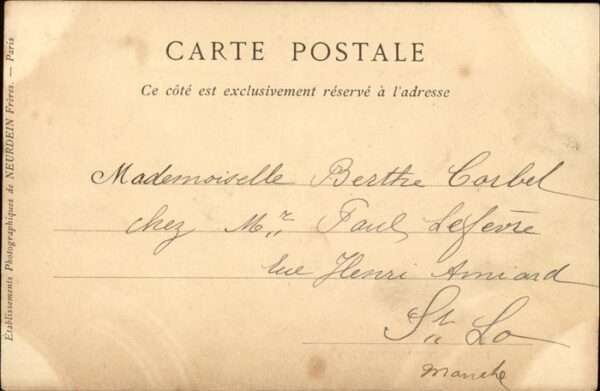 CARTE POSTALE
Ce côté est exclusivement réservé à l'adresse
Mademoiselle Berthe Corbel
chez Mr. Paul Lefèvre
rue Henri Amiard
St. Lo
Manche
Établissements Photographiques de NEURDEIN Frères. — Paris